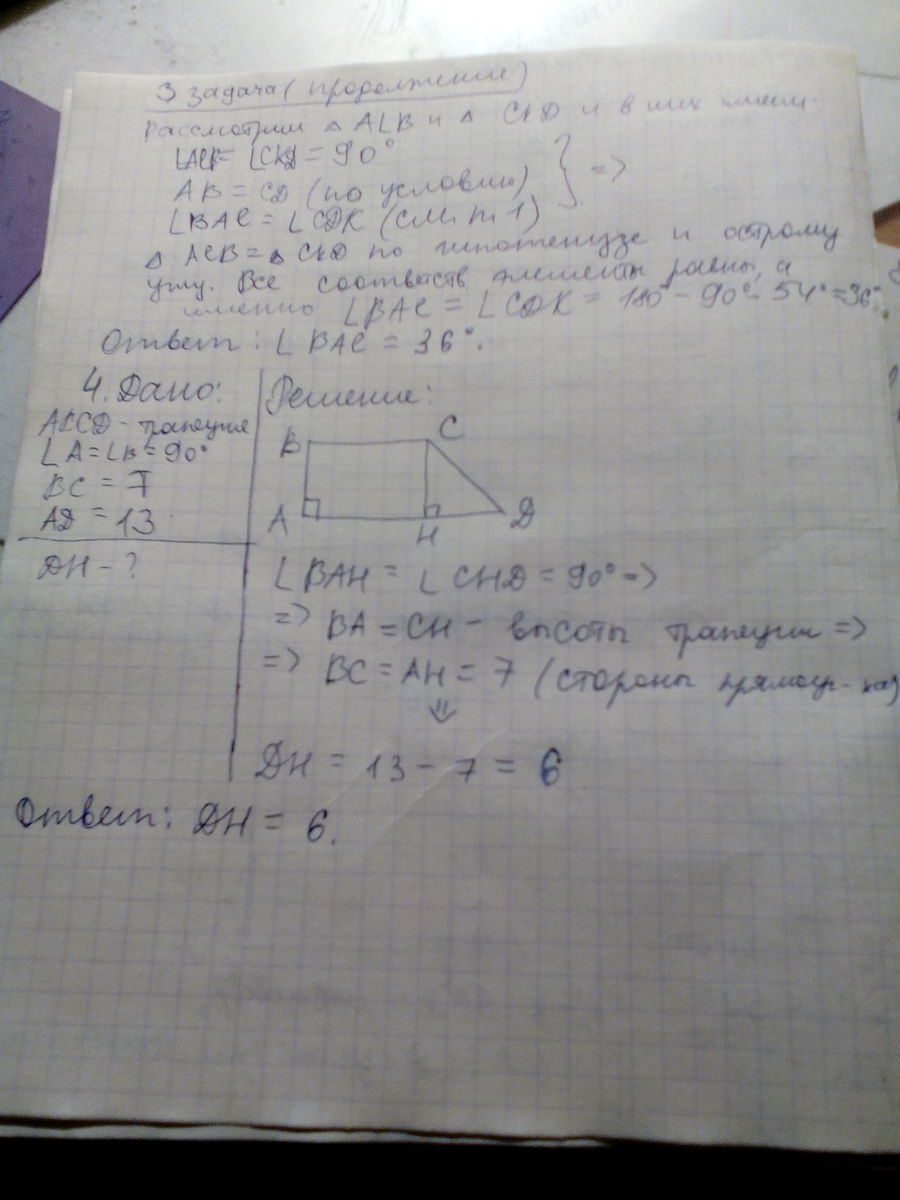 3 задача (продолжение)
Рассмотрим △ ALB и △ CKD и в них имеем:
∠ALB = ∠CKD = 90°
AB = CD (по условию) } =>
∠BAL = ∠CDK (см. п 1)
△ ALB = △ CKD по гипотенузе и острому
углу. Все соответств элементы равны, а
именно ∠BAL = ∠CDK = 180° - 90° - 54° = 36°.
Ответ: ∠ BAL = 36°.
4. Дано:
ABCD - трапеция
∠A = ∠B = 90°
BC = 7
AD = 13
DH - ?
Решение:
B C
A H D
∠ BAH = ∠ CHD = 90° =>
=> BA = CH - высоты трапеции =>
=> BC = AH = 7 (стороны прямоуг-ка)
⇓
DH = 13 - 7 = 6
Ответ: DH = 6.